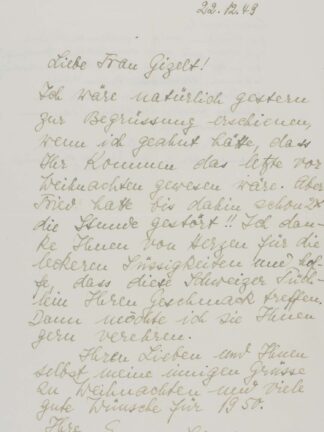 22.12.49
Liebe Frau Gizelt!
Ich wäre natürlich gestern
zur Begrüssung erschienen,
wenn ich geahnt hätte, dass
Ihr Kommen das letzte vor
Weihnachten gewesen wäre. Aber
Fried hatte bis dahin schon 2x
die Stunde gestört!! Ich dan-
ke Ihnen von Herzen für die
leckeren Süssigkeiten und hof-
fe, dass diese Schweizer
Ihren Geschmack treffen.
Dann möchte ich sie Ihnen
gern verehren.
Ihren Lieben und Ihnen
selbst meine innigen Grüsse
zu Weihnachten und viele
gute Wünsche für 1950.
Ihre